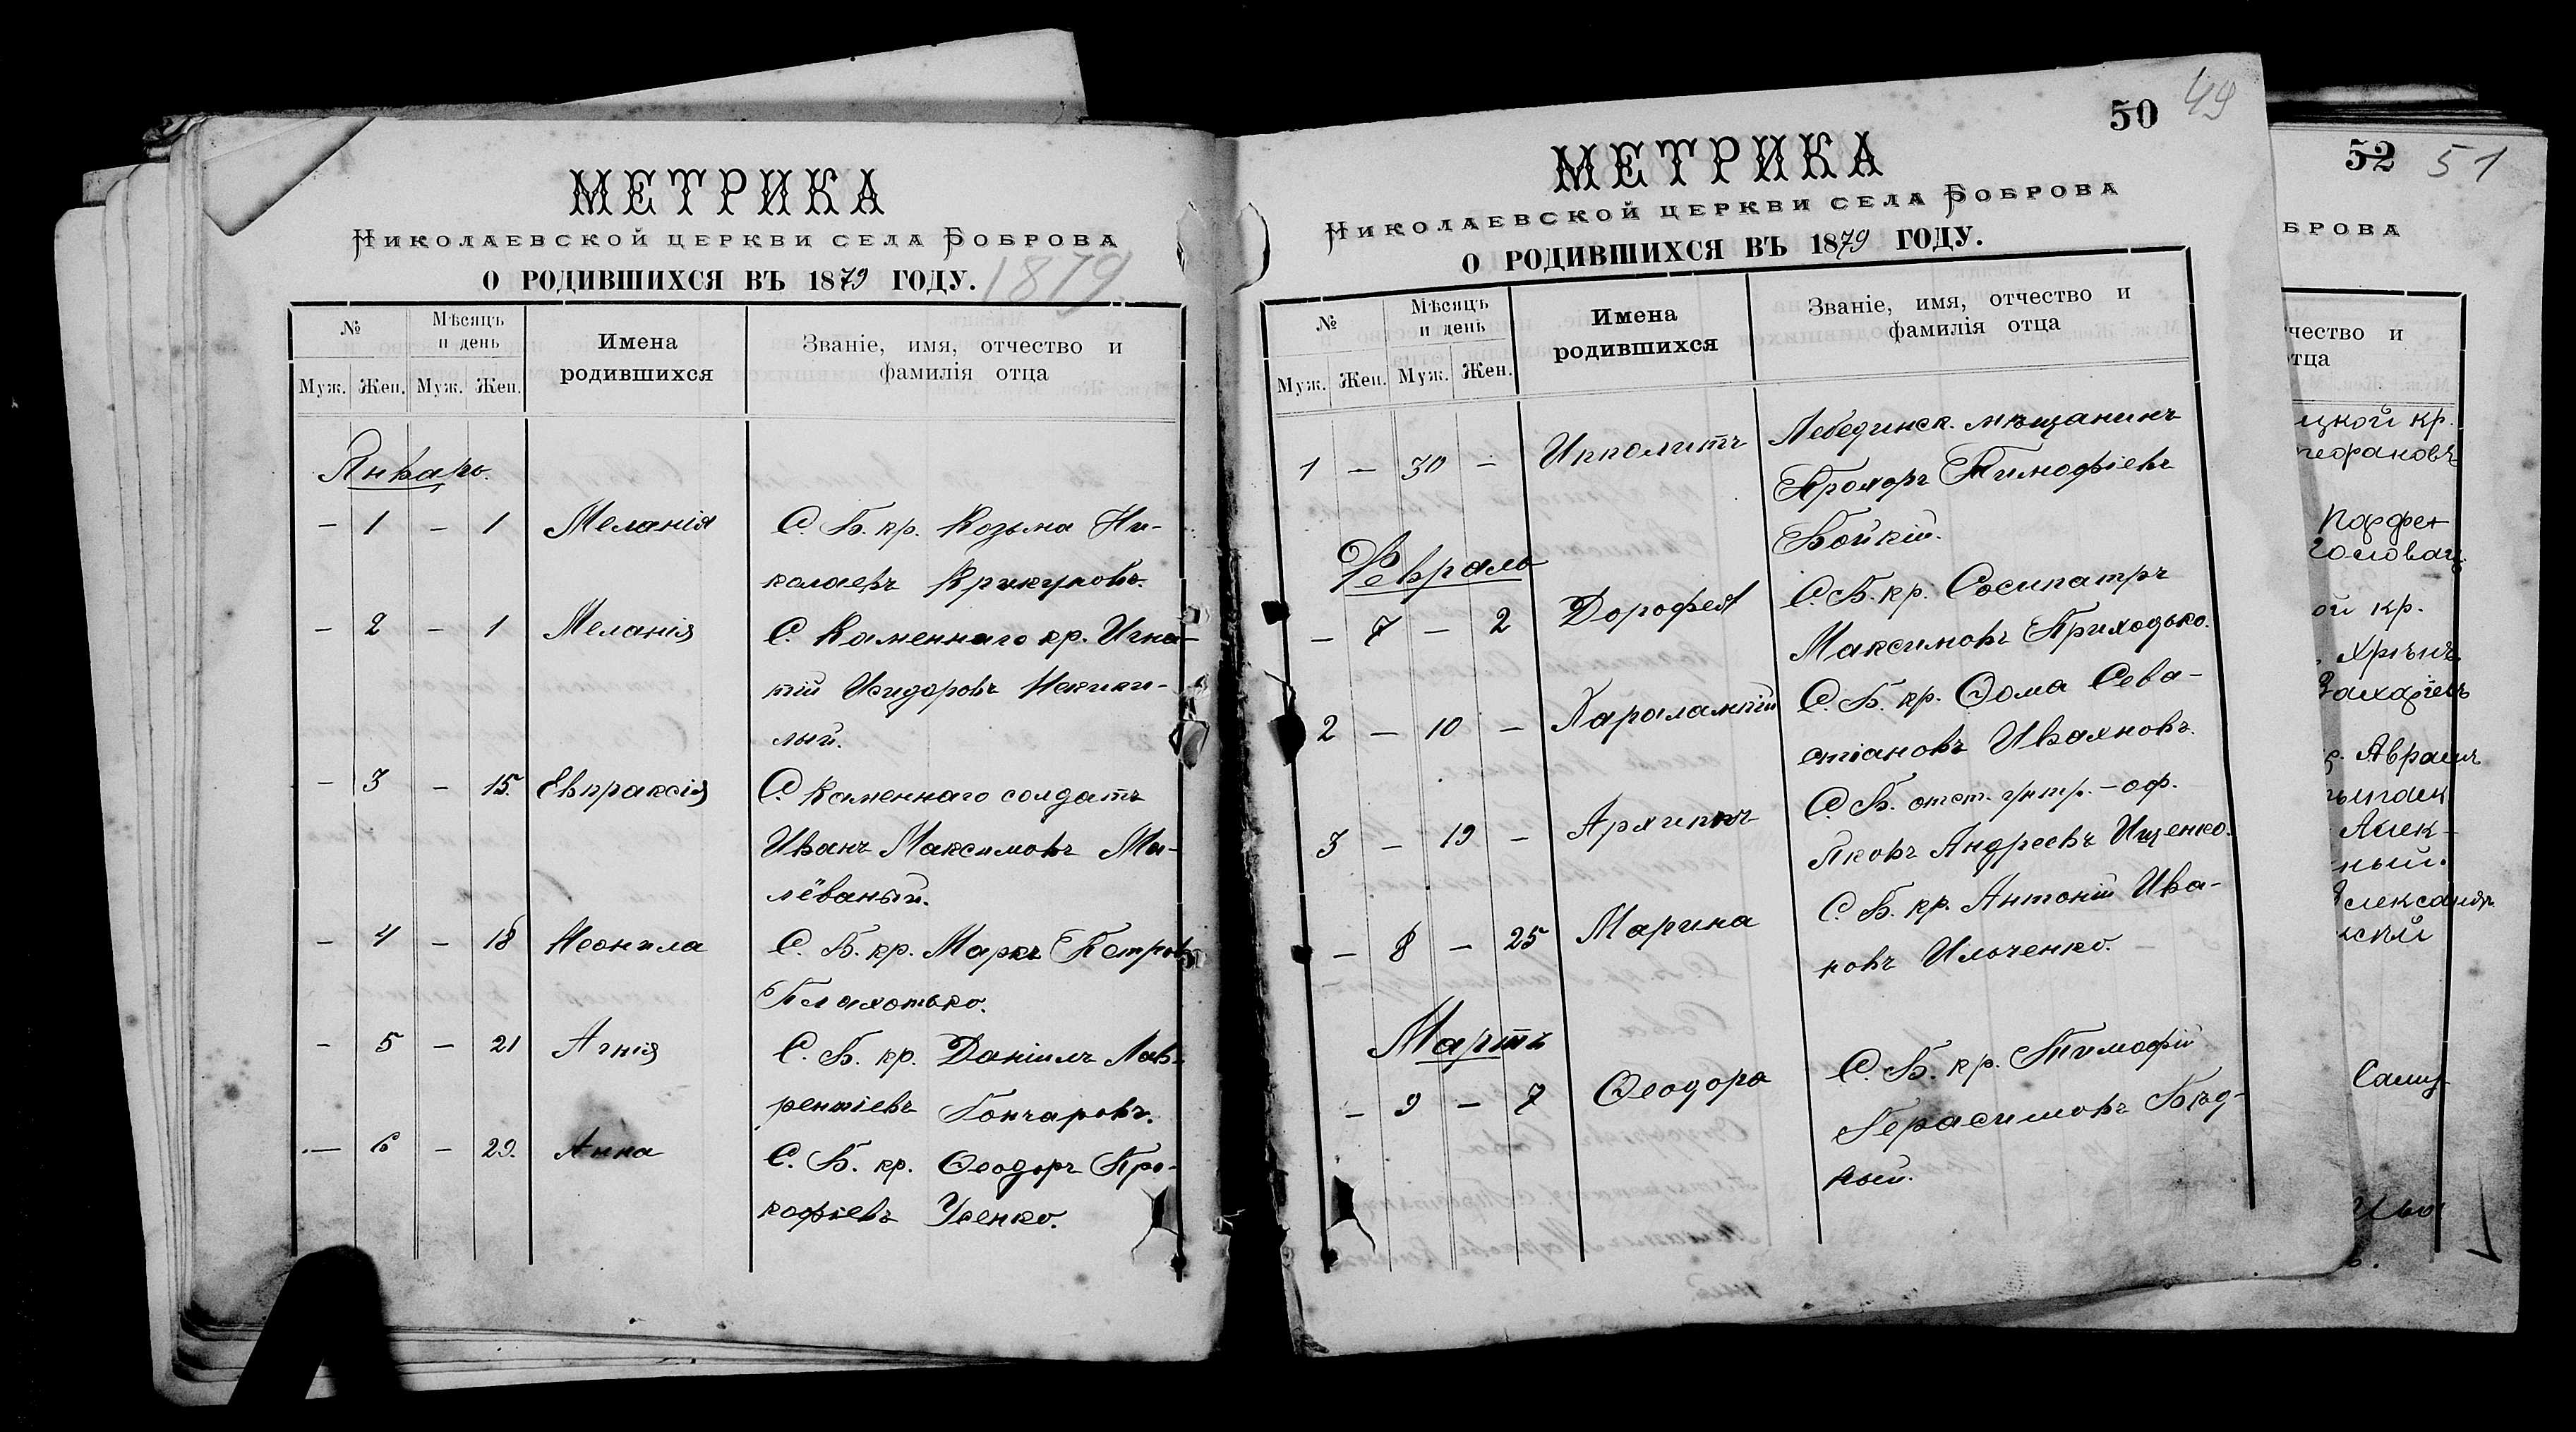 МЕТРИКА
НИКОЛАЕВСКОЙ ЦЕРКВИ СЕЛА БОБРОВА
О РОДИВШИХСЯ ВЪ 1879 ГОДУ. 1879
№ Мѣсяцъ и день Имена родившихся Званіе, имя, отчество и фамилія отца
Муж. Жен. Муж. Жен.
Январь.
— 1 — 1 Меланія С. Б. кр. Козьма Ни-
колаевъ Крикуновъ.
— 2 — 1 Меланія С. Каменнаго кр. Игна-
тій Исидоровъ
лый.
— 3 — 15. Евпраксія С. Каменнаго солдатъ
Иванъ Максимовъ Ма-
лёваный.
— 4 — 18 Неонила С. Б. кр. Маркъ Петровъ
Плахотько.
— 5 — 21 Агнія С. Б. кр. Даніилъ Лав-
рентіевъ Гончаровъ.
— 6 — 29. Анна С. Б. кр. Ѳеодоръ Про-
кофіевъ Усенко.
50 49
МЕТРИКА
НИКОЛАЕВСКОЙ ЦЕРКВИ СЕЛА БОБРОВА
О РОДИВШИХСЯ ВЪ 1879 ГОДУ.
№ Мѣсяцъ и день Имена родившихся Званіе, имя, отчество и фамилія отца
Муж. Жен. Муж. Жен.
1 — 30 — Ипполитъ Лебединск. мѣщанинъ
Прохоръ Тимофіевъ
Бойкій.
Февраль
— 7 — 2 Дорофея С. Б. кр. Сосипатръ
Максимовъ Приходько.
2 — 10 — Харалампій С. Б. кр. Ѳома Сева-
стіановъ Ивахновъ.
3 — 19 — Архиппъ С. Б. отст. унтр.-оф.
Яковъ Андреевъ Ищенко.
— 8 — 25 Марина С. Б. кр. Антоній Ива-
новъ Ильченко.
Мартъ
— 9 — 7 Ѳеодора С. Б. кр. Тимофій
Герасимовъ Бѣд-
ный.
52 51
БРОВА
чество и
тца
цкой кр.
ой кр.
Авраам
Алек-
ный.